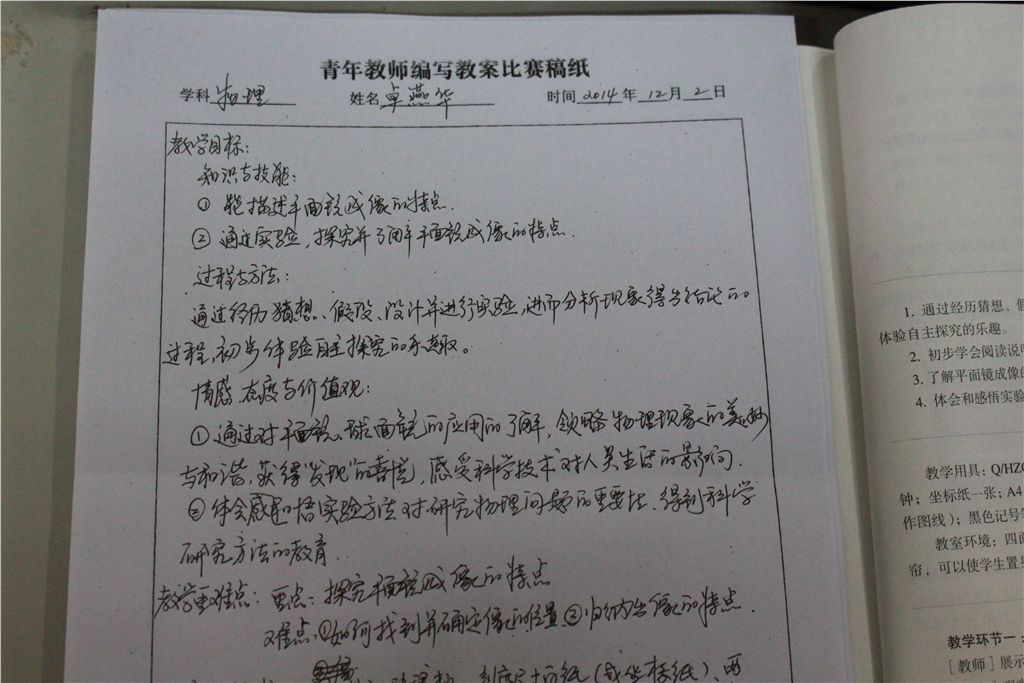 青年教师编写教案比赛稿纸
学科 物理 姓名 卓燕华 时间 2014 年 12 月 2 日
教学目标:
知识与技能:
① 能描述平面镜成像的特点.
② 通过实验,探究并了解平面镜成像的特点.
过程与方法:
通过经历猜想、假设、设计并进行实验,进而分析现象得出结论的
过程,初步体验自主探究的乐趣。
情感、态度与价值观:
① 通过对平面镜、球面镜的应用的了解,领略物理现象的美妙
与和谐,获得“发现”的喜悦,感受科学技术对人类生活的影响.
② 体会感悟实验方法对研究物理问题的重要性、得到科学
研究方法的教育.
教学重难点: 重点: 探究平面镜成像的特点
难点:①如何找到并确定像的位置 ②归纳出像的特点.
刻度尺、白纸(或坐标纸)、两
1. 通过经历猜想、
体验自主探究的乐趣。
2. 初步学会阅读说
3. 了解平面镜成像的
4. 体会和感悟实验
教学用具: Q/HZ
钟; 坐标纸一张; A4
作图线); 黑色记号
教室环境: 四面
帘, 可以使学生置
教学环节一
[教师] 展示